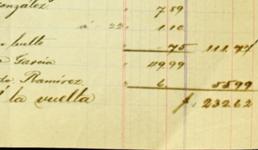 onzález " 7.59
á 22. 1.10
bulto " -75 111.74
García " 49.99
Ramírez " 6 55.99
á la vuelta $ 232.62